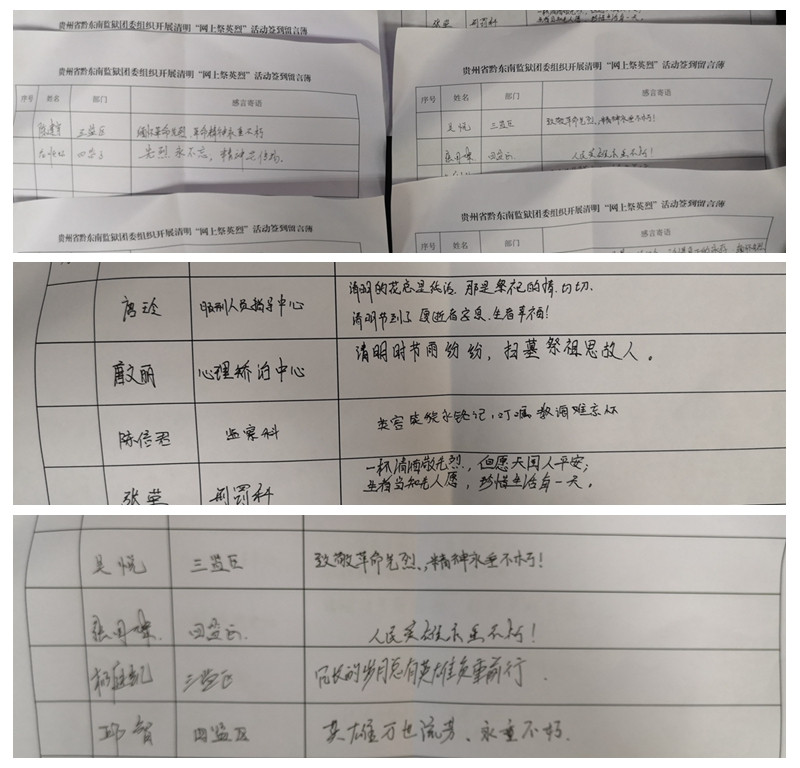 贵州省黔东南监狱团委组织开展清明“网上祭英烈”活动签到留言簿
刑罚科
贵州省黔东南监狱团委组织开展清明“网上祭英烈”活动签到留言簿
序号 姓名 部门 感言寄语
三监区 革命精神永垂不朽
四监区 先烈永不忘，精神
贵州省黔东南监狱团委组织开展清明“网上祭英烈”活动签到留言簿
序号 姓名 部门 感言寄语
吴悦 三监区 致敬革命先烈，精神永垂不朽！
四监区 人民英雄永垂不朽！
贵州省黔东南监狱团委组织开展清明“网上祭英烈”活动签到留言簿
序号 姓名 部门 感言寄语
贵州省黔东南监狱团委组织开展清明“网上祭英烈”活动签到留言簿
序号 姓名 部门 感言寄语
清明的花总是纸治，那是祭祀的情，切切.
唐玲 服刑人员指导中心
清明节到了，愿逝者安息，生者幸福！
文丽 心理矫治中心 清明时节雨纷纷，扫墓祭祖思故人。
陈信君 监察科 永铭记，叮嘱教诲难忘怀
一杯清酒敬先烈，但愿天国人平安；
张莹 刑罚科 生者当知先人愿，珍惜生活每一天。
吴悦 三监区 致敬革命先烈，精神永垂不朽！
四监区 人民英雄永垂不朽！
三监区 冗长的岁月总有英雄负重前行.
邱智 四监区 英雄万世流芳、永垂不朽.